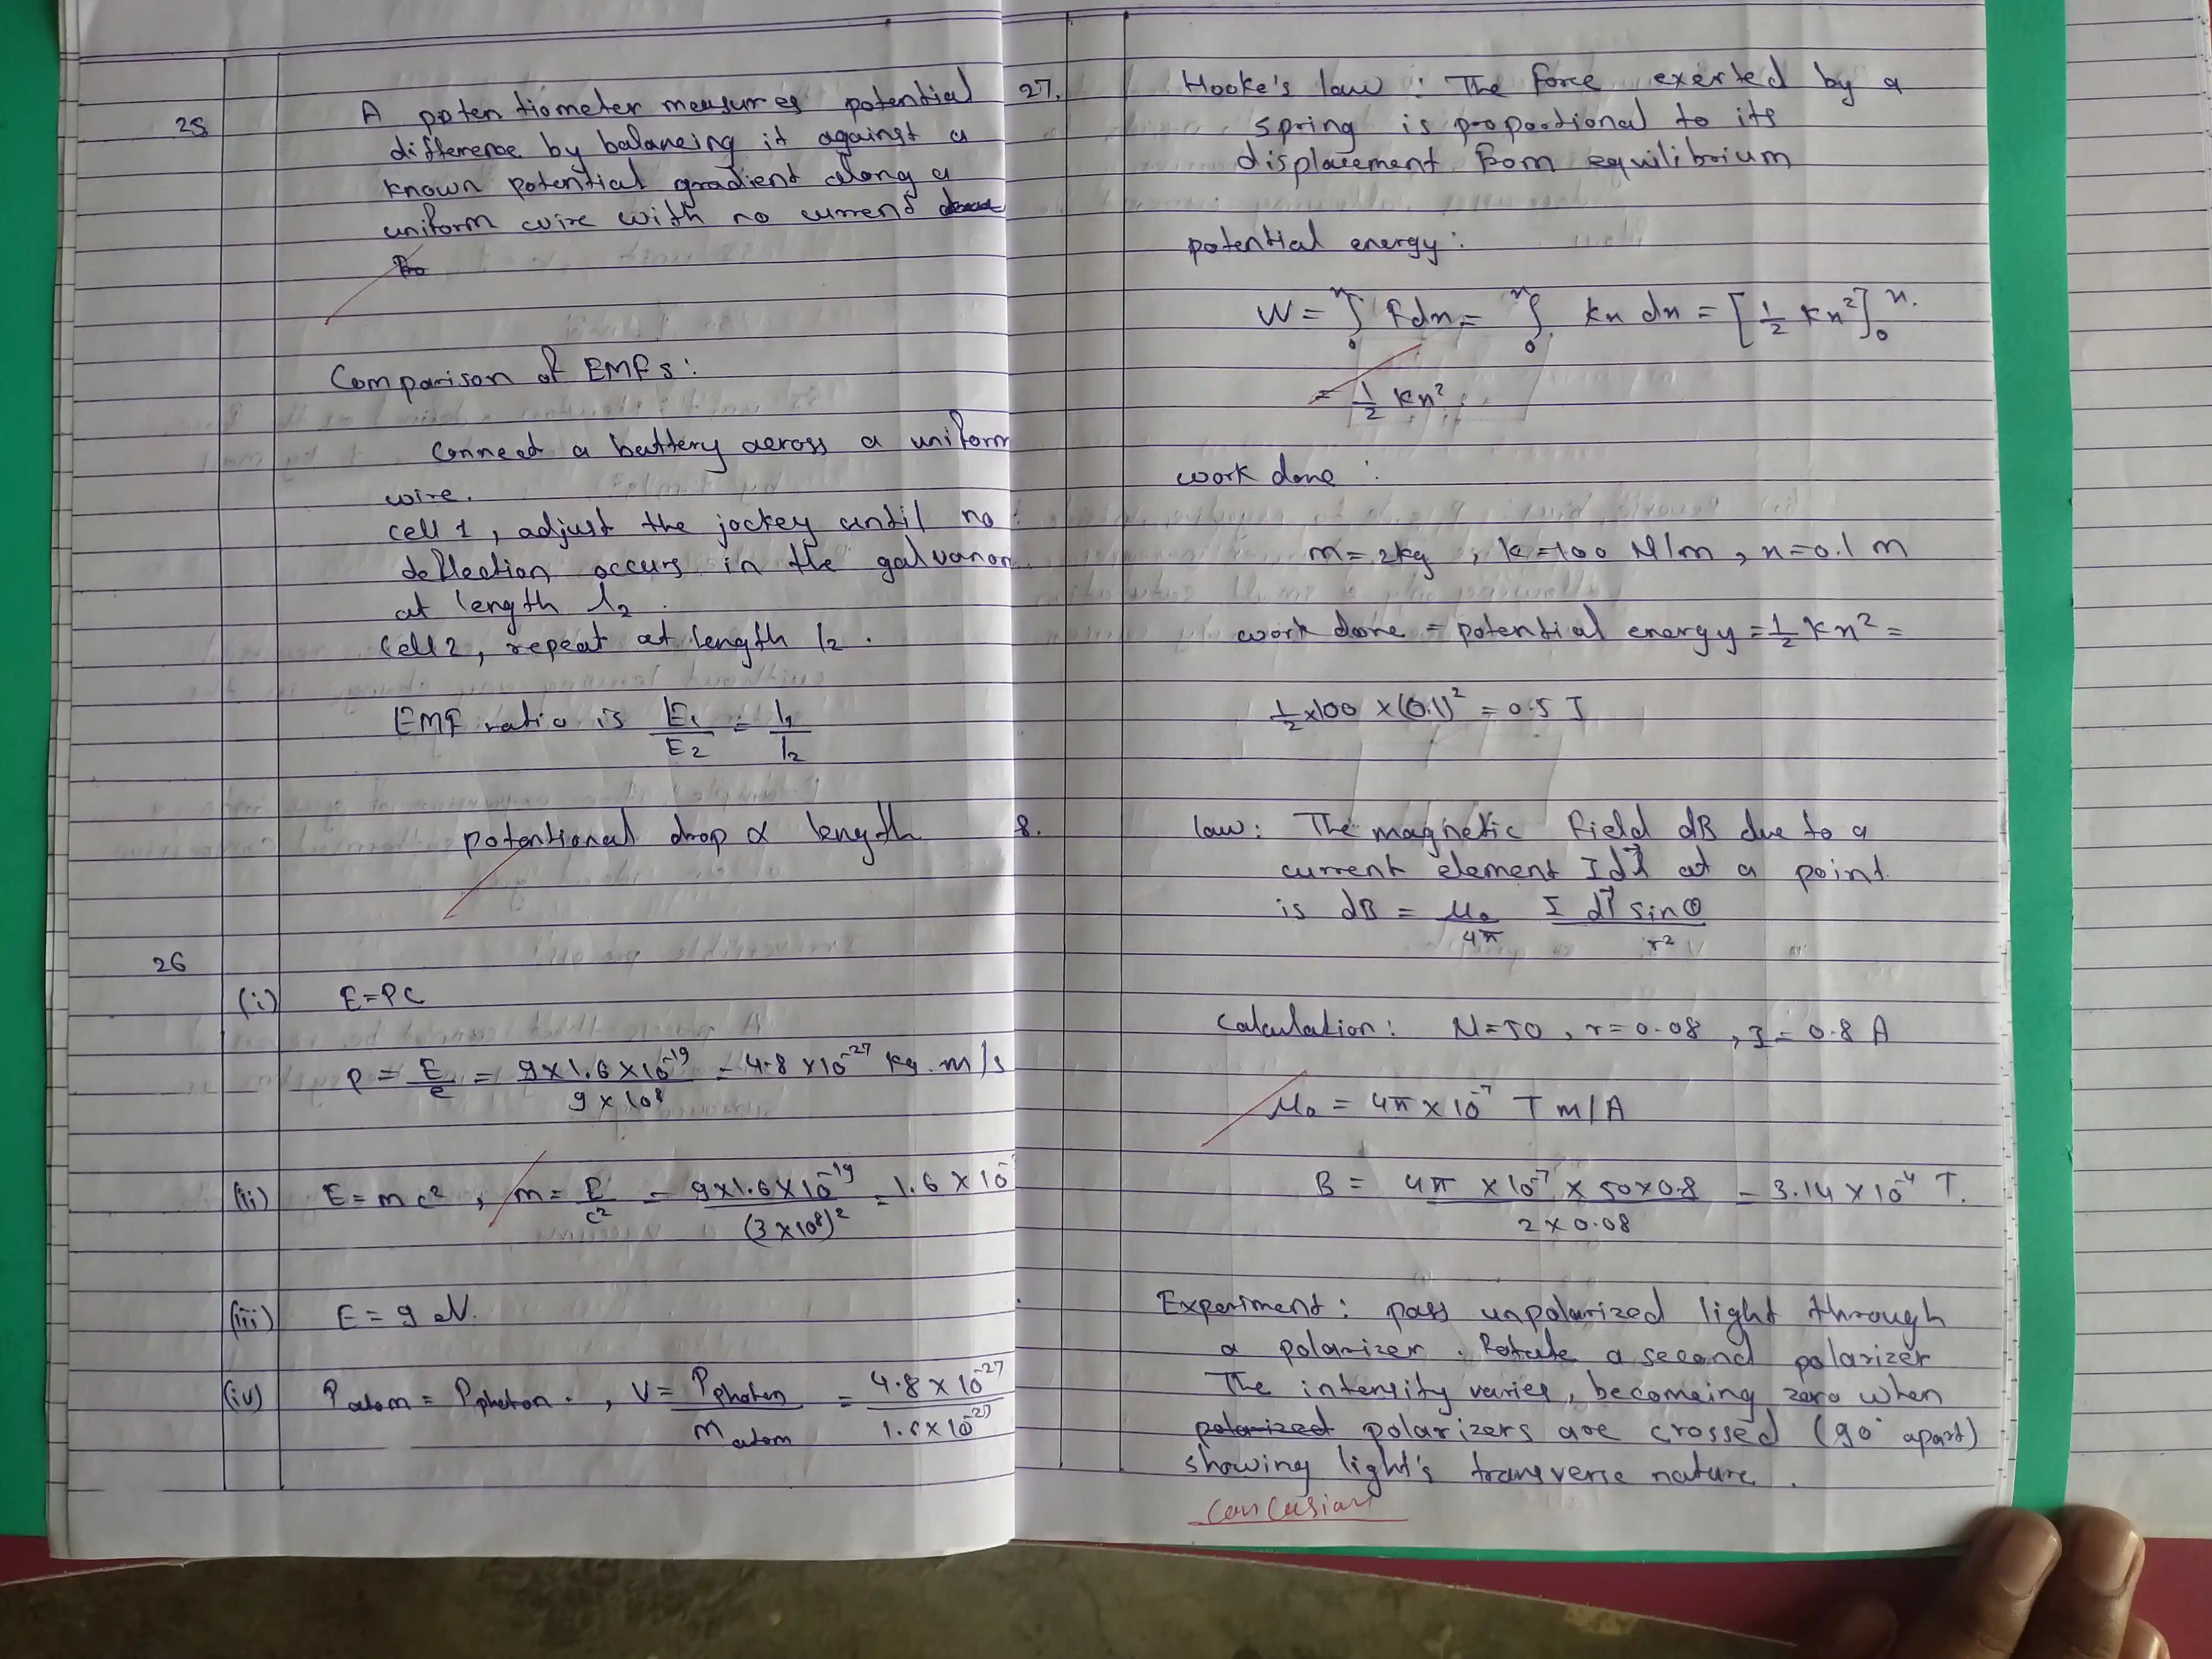 25
A potentiometer measures potential
difference by balancing it against a
known potential gradient along a
uniform wire with no current
Comparison of EMFs:
Connect a battery across a uniform
wire.
cell 1, adjust the jockey until no
deflection occurs in the galvanom
at length l2.
Cell 2, repeat at length l2.
EMF ratio is E1/E2 = l1/l2
potentional drop ∝ length
26
(i) E=PC
P = E/c = 9×1.6×10^-19/9×10^8 = 4.8×10^-27 kg.m/s
(ii) E=mc², m=E/c² = 9×1.6×10^-19/(3×10^8)² = 1.6×10^-
(iii) E=9 eV.
(iv) Patom = Pphoton., V = Pphoton/matom = 4.8×10^-27/1.6×10^-27
27. Hooke's law: The force exerted by a
spring is proportional to its
displacement from equilibrium
potential energy:
W = ∫₀ˣ Fdx = ∫₀ˣ kx dx = [½ kx²]₀ˣ.
= ½ kx²
work done:
m=2kg, k=100 N/m, x=0.1 m
work done = potential energy = ½ kx² =
½×100×(0.1)² = 0.5 J
8. law: The magnetic field dB due to a
current element Idl⃗ at a point
is dB = μ₀/4π I dl⃗ sinθ/r²
Calculation: N=50, r=0.08, I=0.8 A
μ₀ = 4π×10^-7 T m/A
B = 4π×10^-7×50×0.8/2×0.08 = 3.14×10^-4 T.
Experiment: pass unpolarized light through
a polarizer. Rotate a second polarizer
The intensity varies, becomeing zero when
polarized polarizers are crossed (90° apart)
showing light's transverse nature.